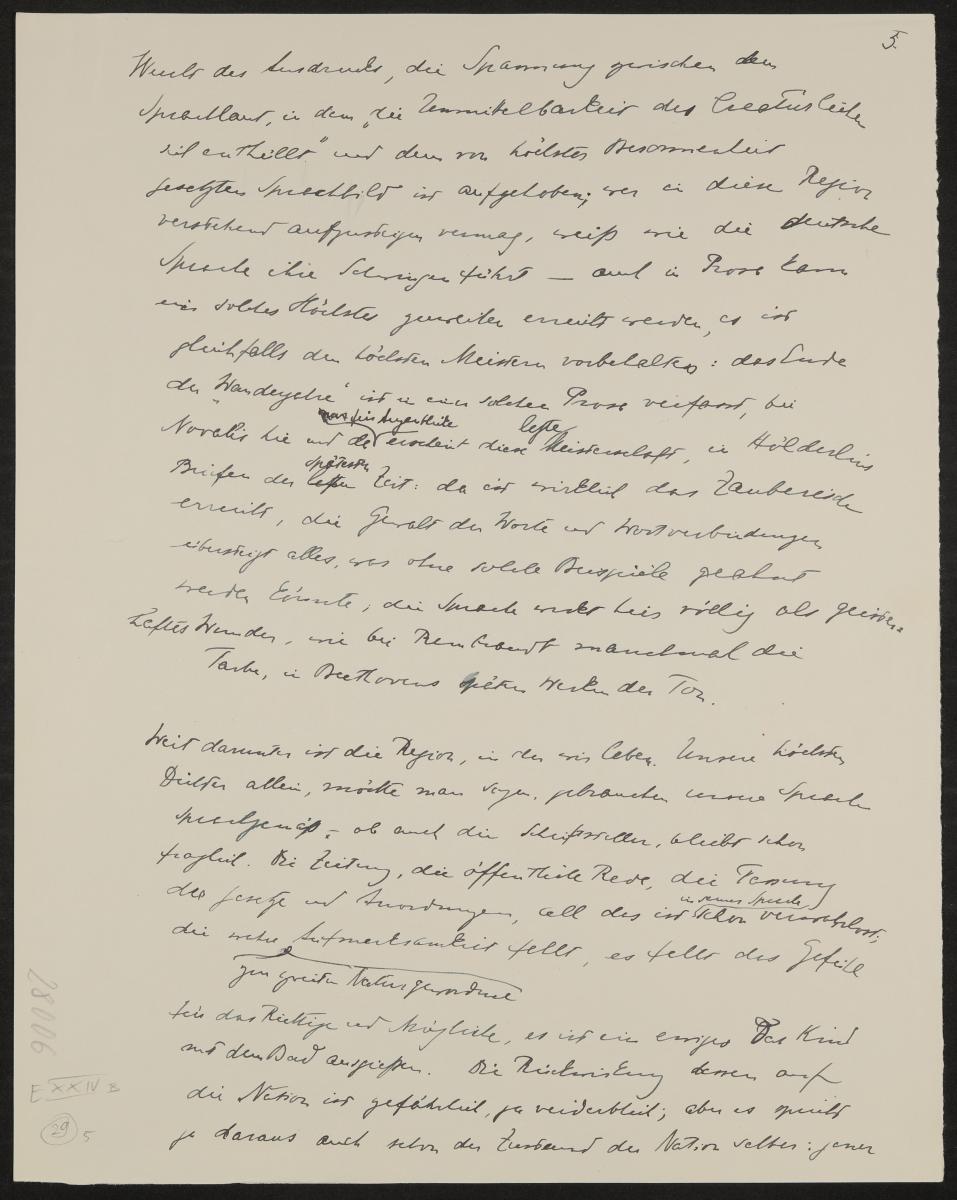 5.
Wucht des Ausdrucks, die Spannung zwischen dem
Sprachlaut, in dem „die Unmittelbarkeit des Creatürlichen
sich enthüllt“ und dem von höchster Besonnenheit
gesetzten Sprachbild ist aufgehoben; wer in diese Region
verstehend aufzusteigen vermag, weiß wie die deutsche
Sprache ihre Schwingen führt — auch in Prosa kann
ein solches Höchstes zuweilen erreicht werden, es ist
gleichfalls den höchsten Meistern vorbehalten: das Ende
der „Wanderjahre“ ist in einer solchen Prosa verfasst, bei
für Augenblicke
Novalis hie und da erscheint diese letzte Meisterschaft, in Hölderlins
spätesten
Briefen der letzten Zeit: da ist wirklich das Zauberische
erreicht, die Gewalt der Worte und Wortverbindungen
übersteigt alles, was ohne solche Beispiele geahnt
werden könnte; die Sprache wirkt hier völlig als geister-
haftes Wunder, wie bei Rembrandt manchmal die
Farbe, in Beethovens späten Werken der Ton.
Weit darunter ist die Region, in der wir leben. Unsere höchsten
Dichter allein, möchte man sagen, gebrauchen unsere Sprache
sprachgemäß, – ob auch die Schriftsteller, bleibt schon
fraglich. Die Zeitung, die öffentliche Rede, die Fassung
in seiner Sprache
der Gesetze und Anordnungen, all das ist schon verwahrlost;
die wahre Aufmerksamkeit fehlt, es fehlt das Gefühl
zur zweiten Natur gewordene
für das Richtige und Mögliche, es ist ein ewiges Das Kind
mit dem Bad ausgießen. Die Rückwirkung dessen auf
die Nation ist gefährlich, ja verderblich; aber es spricht
ja daraus auch schon der Zustand der Nation selber: jener
28006
E XXIV B
29 5